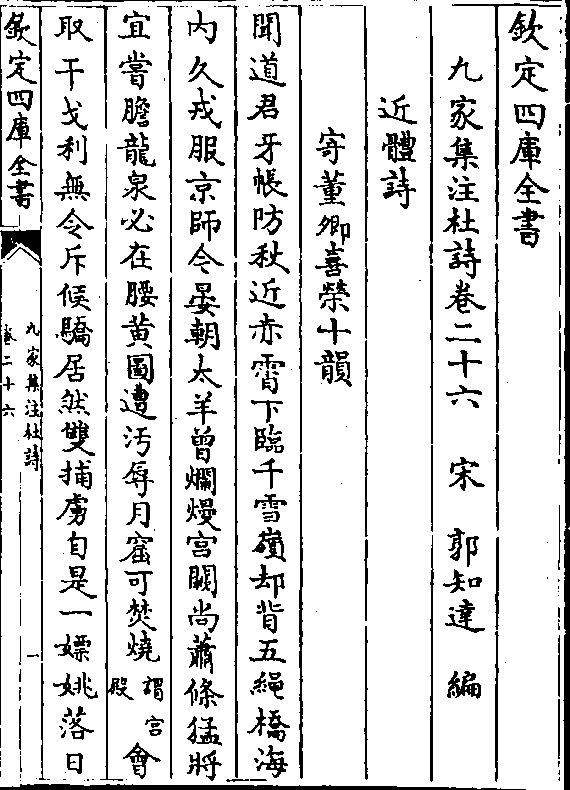 欽定四庫全書
九家集注杜詩卷二十六 宋 郭知達 編
近體詩
寄董卿喜榮十韻
聞道君牙帳防秋近赤霄下臨千雪嶺却背五繩橋海
內久戎服京師今晏朝太羊曾爛熳宮闕尚蕭條猛將
宜嘗膽龍泉必在腰黃圖遭汚辱月窟可焚燒謂宮殿會
取干戈利無令斥候驕居然雙捕虜自是一嫖姚落日
欽定四庫全書
九家集注杜詩
卷二十六
一